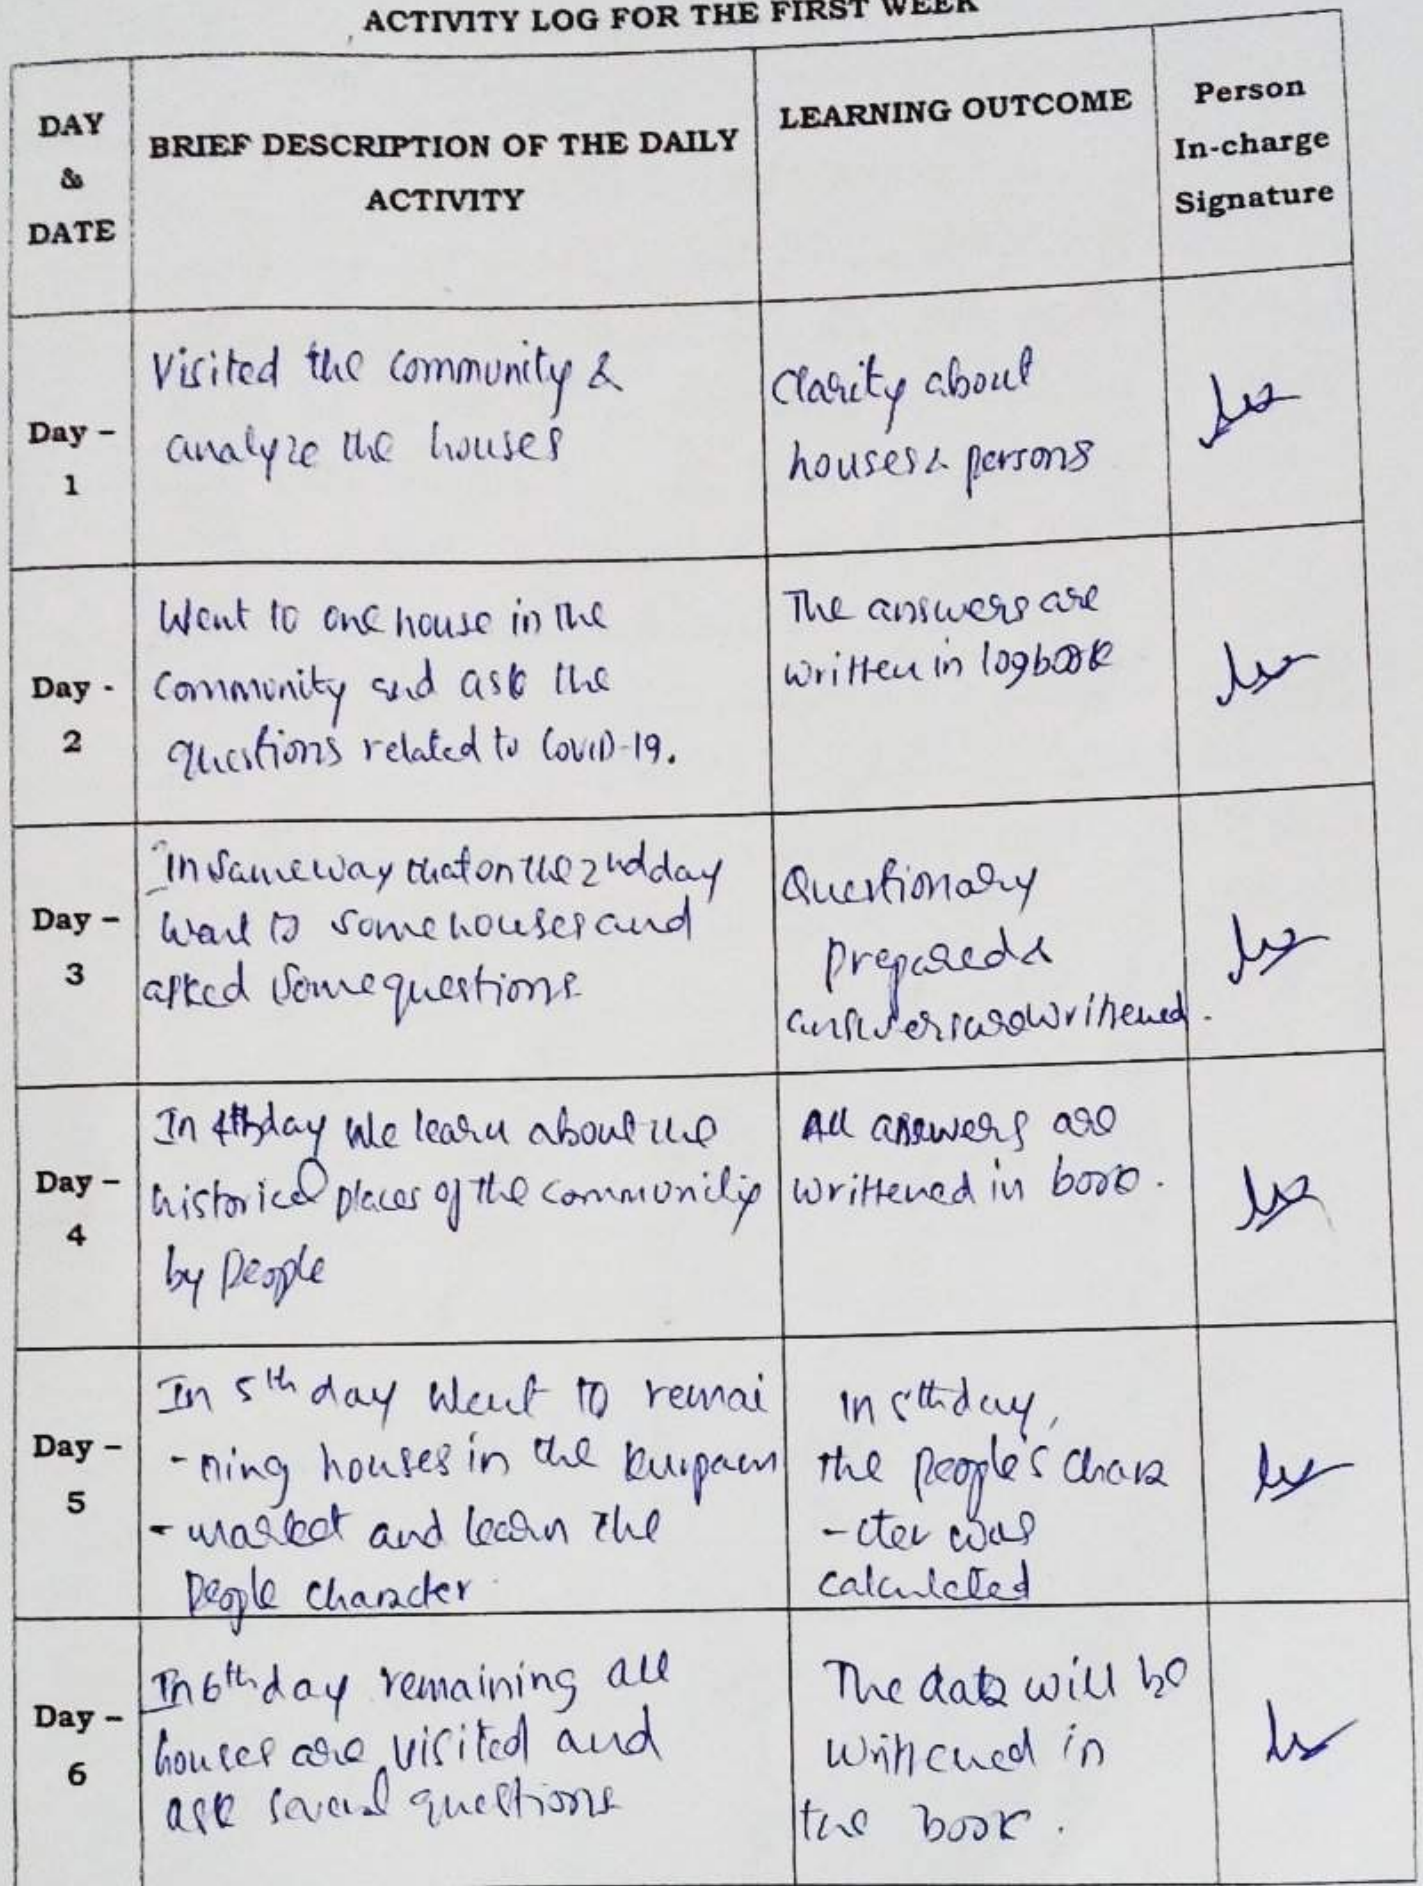 ACTIVITY LOG FOR THE FIRST WEEK
DAY
&
DATE
BRIEF DESCRIPTION OF THE DAILY
ACTIVITY
LEARNING OUTCOME
Person
In-charge
Signature
Day –
1
Visited the community &
analyze the houses
Clarity about
houses & persons
Day -
2
Went to one house in the
community and ask the
questions related to COVID-19.
The answers are
written in logbook
Day –
3
In same way that on the 2nd day
want to some houses and
asked some questions
Questionary
prepared &
answers are writtened.
Day –
4
In 4th day we learn about the
historical places of the community
by people
All answers are
writtened in book.
Day –
5
In 5th day went to remai
-ning houses in the
-market and learn the
people character
In 5th day,
the people's chara
-cter was
calculated
Day –
6
In 6th day remaining all
houses are visited and
ask several questions
The data will be
writtened in
the book.